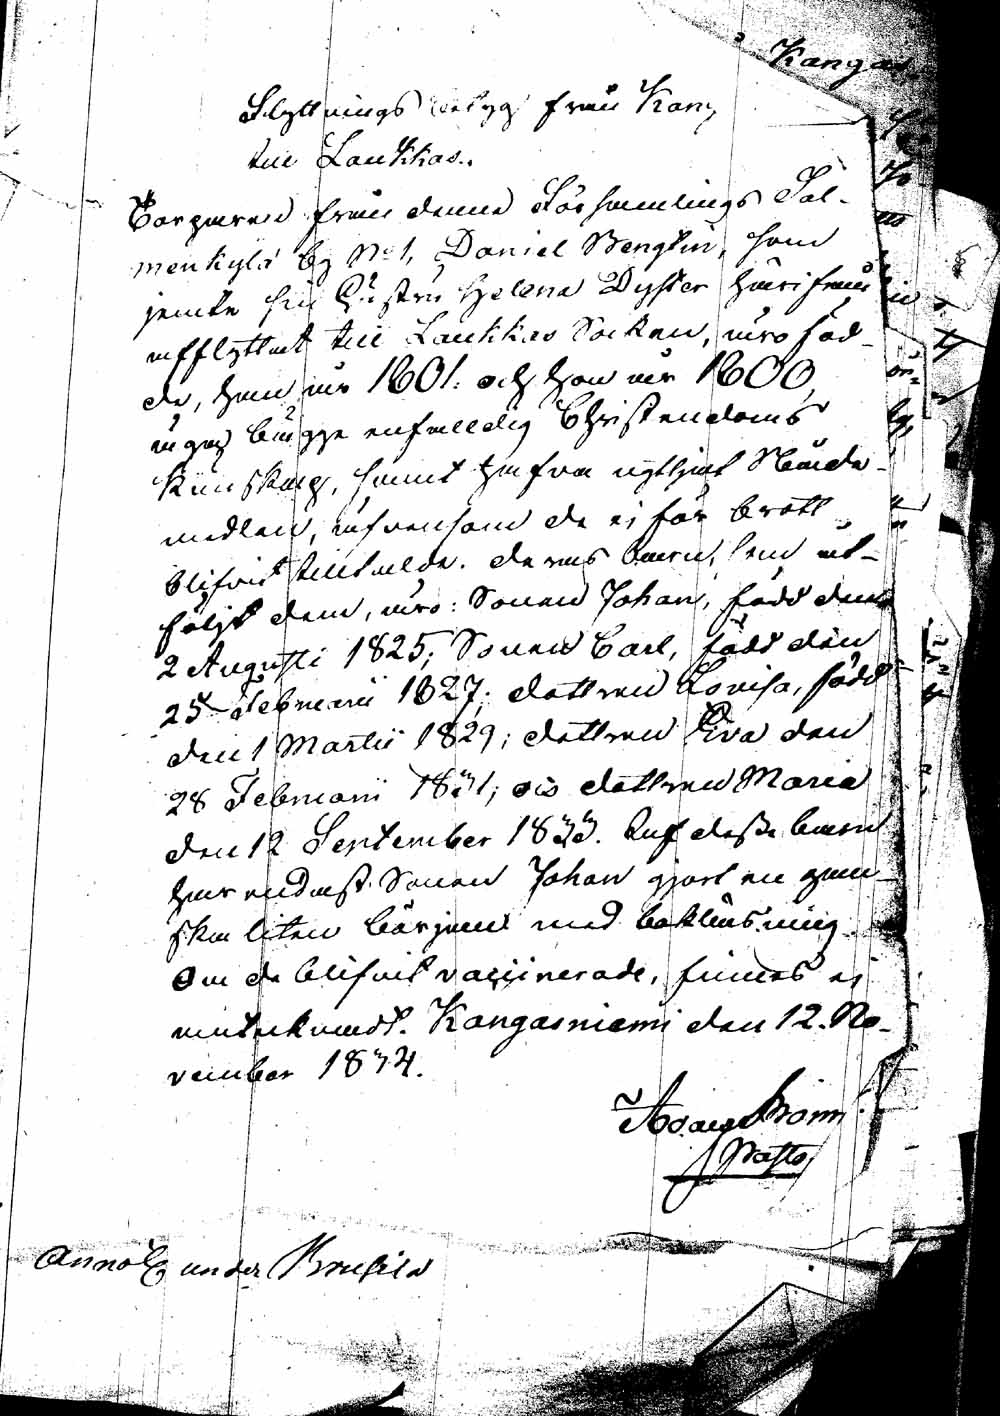 Kangas
Flyttnings betyg från Kang
till Laukkas.
Torparen från denna Församlings Sal-
menkylä by No 1, Daniel Bengtin, som
jemte sin hustru Helena Dyster härifrån
afflyttat till Laukkas Socken, äro föd-
de, han år 1801. och hon år 1800,
äga bägge enfalldig Christendoms
kunskap, samt hafva nyttjat Nåde-
medlen, äfvensom de ej för brott
blifvit tilltalde. Deras barn, som åt-
följt dem, äro: Sonen Johan, född den
2 Augusti 1825; Sonen Carl, född den
25 Februarii 1827; dottren Lovisa, född
den 1 Martii 1829; dottren Eva den
28 Februarii 1831; och dottren Maria
den 12 September 1833. Af dessa barn
har endast Sonen Johan gjort en gan-
ska liten början med bokläsning.
Om de blifvit vaccinerade, finnes ej
antecknadt. Kangasniemi den 12. No-
vember 1834.
Pastor
under